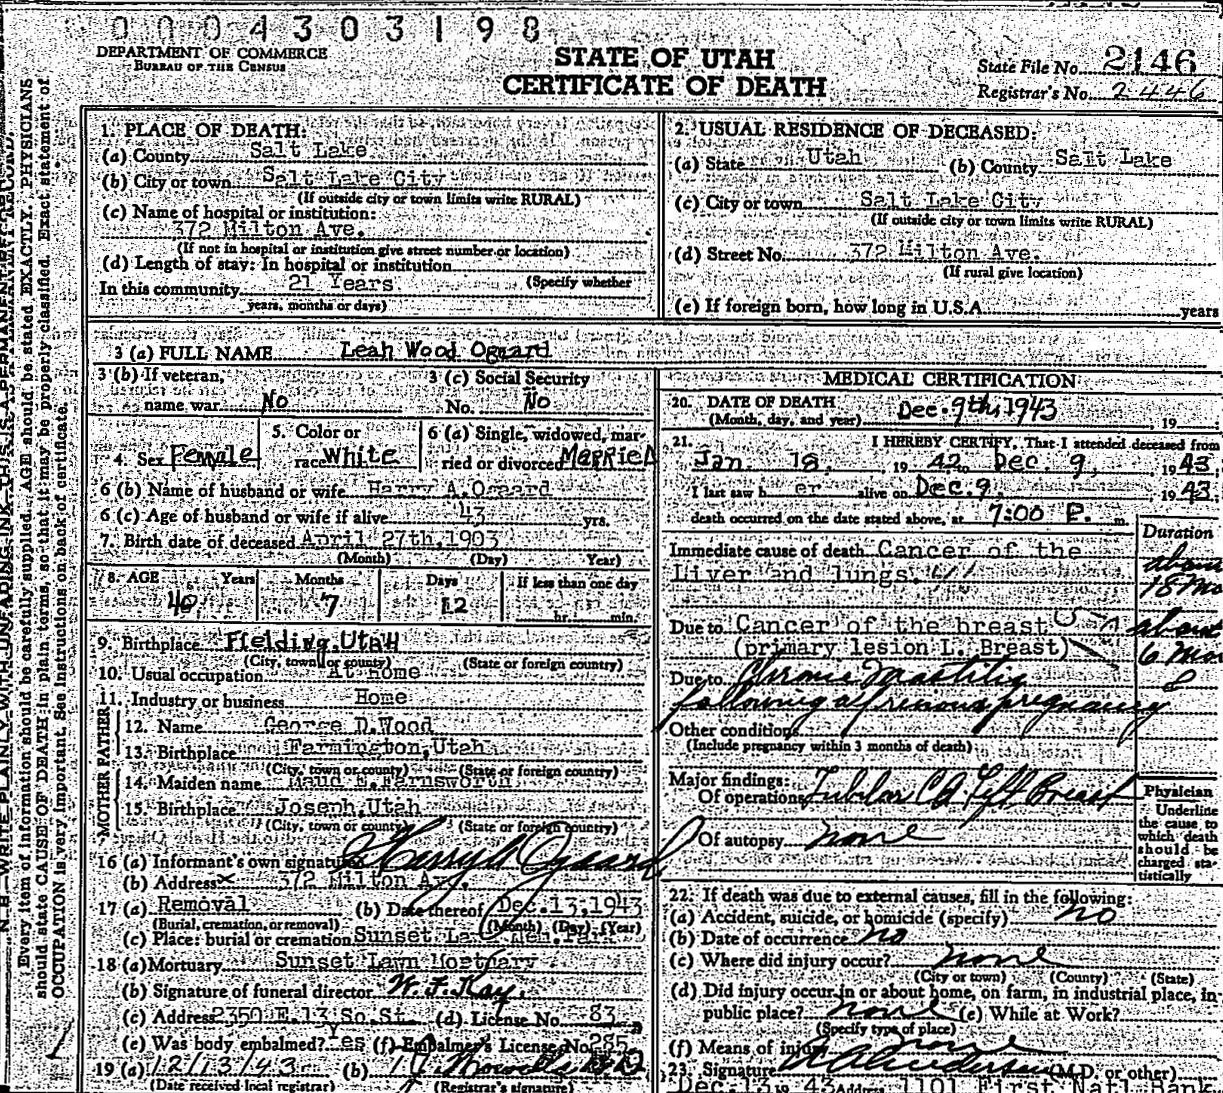 0004303198
DEPARTMENT OF COMMERCE
BUREAU OF THE CENSUS
STATE OF UTAH
CERTIFICATE OF DEATH
State File No. 2146
Registrar's No. 2446
N. B.—WRITE PLAINLY WITH UNFADING INK—THIS IS A PERMANENT RECORD.
Every item of information should be carefully supplied. AGE should be stated EXACTLY. PHYSICIANS
should state CAUSE OF DEATH in plain terms, so that it may be properly classified. Exact statement of
OCCUPATION is very important. See instructions on back of certificate.
1. PLACE OF DEATH:
(a) County Salt Lake
(b) City or town Salt Lake City
(If outside city or town limits write RURAL)
(c) Name of hospital or institution:
372 Milton Ave.
(If not in hospital or institution give street number or location)
(d) Length of stay: In hospital or institution
In this community 21 Years (Specify whether
years, months or days)
2. USUAL RESIDENCE OF DECEASED:
(a) State Utah (b) County Salt Lake
(c) City or town Salt Lake City
(If outside city or town limits write RURAL)
(d) Street No. 372 Milton Ave.
(If rural give location)
(e) If foreign born, how long in U.S.A. years
3 (a) FULL NAME Leah Wood Ogaard
3 (b) If veteran,
name war No
3 (c) Social Security
No. No
4. Sex Female
5. Color or
race White
6 (a) Single, widowed, mar-
ried or divorced Married
6 (b) Name of husband or wife Harry A. Ogaard
6 (c) Age of husband or wife if alive 43 yrs.
7. Birth date of deceased April 27th, 1903
(Month) (Day) Year)
8. AGE Years Months Days If less than one day
40 7 12 hr. min.
9. Birthplace Fielding, Utah
(City, town or county) (State or foreign country)
10. Usual occupation At Home
11. Industry or business Home
FATHER
12. Name George D. Wood
13. Birthplace Farmington, Utah
(City, town or county) (State or foreign country)
MOTHER
14. Maiden name Maud E. Farnsworth
15. Birthplace Joseph, Utah
(City, town or county) (State or foreign country)
16 (a) Informant's own signature Harry A Ogaard
(b) Address x 372 Milton Av.
17 (a) Removal (b) Date thereof Dec. 13, 1943
(Burial, cremation, or removal) (Month) (Day) (Year)
(c) Place: burial or cremation Sunset Lawn Mem. Park
18 (a) Mortuary Sunset Lawn Mortuary
(b) Signature of funeral director W. F. Kay.
(c) Address 2350 E. 13 So. St. (d) License No. 83
(e) Was body embalmed? Yes (f) Embalmer's License No. 285
19 (a) 12/13/43 (b)
(Date received local registrar) (Registrar's signature)
MEDICAL CERTIFICATION
20. DATE OF DEATH Dec. 9th, 1943
(Month, day, and year) , 19
21. I HEREBY CERTIFY, That I attended deceased from
Jan. 18, , 19 42 to Dec. 9, , 19 43.
I last saw h er alive on Dec. 9, , 19 43.
death occurred on the date stated above, at 7:00 P. m.
Duration
Immediate cause of death Cancer of the
Liver and lungs.
about
18 Mo
Due to Cancer of the breast
(primary lesion L. Breast)
about
6 Mos
Due to Chronic Mastitis
following a previous pregnancy
Other conditions
(Include pregnancy within 3 months of death)
Major findings:
Of operations Tubular CA Left Breast
Of autopsy none
Physician
Underline
the cause to
which death
should be
charged sta-
tistically
22. If death was due to external causes, fill in the following:
(a) Accident, suicide, or homicide (specify) no
(b) Date of occurrence no
(c) Where did injury occur? none
(City or town) (County) (State)
(d) Did injury occur in or about home, on farm, in industrial place, in
public place? none (e) While at Work?
(Specify type of place)
(f) Means of injury none
23. Signature (M.D. or other)
Dec. 13 19 43 Address 1101 First Natl Bank